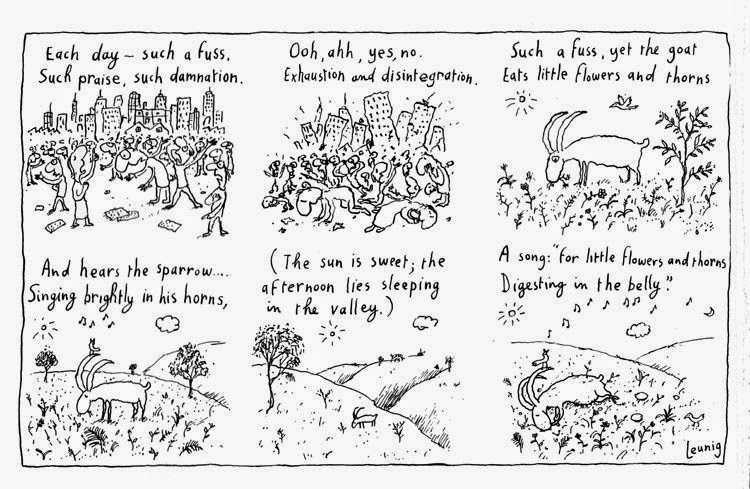 Each day – such a fuss,
Such praise, such damnation.
Ooh, ahh, yes, no.
Exhaustion and disintegration.
Such a fuss, yet the goat
Eats little flowers and thorns
And hears the sparrow....
Singing brightly in his horns,
(The sun is sweet; the
afternoon lies sleeping
in the valley.)
A song: "for little flowers and thorns
Digesting in the belly."
Leunig